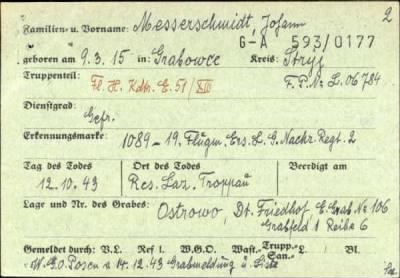 2
Familien- u. Vorname: Messerschmidt, Johann
G-A 593/0177
geboren am 9.3.15 in: Grabowce Kreis: Stryj
Truppenteil: Fl. H. Kdtr. E. 51/XIII F.P.Nr L 06784
Dienstgrad: Gefr.
Erkennungsmarke: 1089 - 19. Flugm. Ers. L. G. Nachr. Regt. 2
Tag des Todes Ort des Todes Beerdigt am
12.10.43 Res. Laz. Troppau
Lage und Nr. des Grabes: Ostrowo Dt. Friedhof E. Grab No 106
Grabfeld 1 Reihe 6
Gemeldet durch: V.L. Ref I. W.G.O. Wast.- Trupp.- L. Bl.
San.-
W.G.O Posen v. 14.12.43 Grabmeldung u. Liste